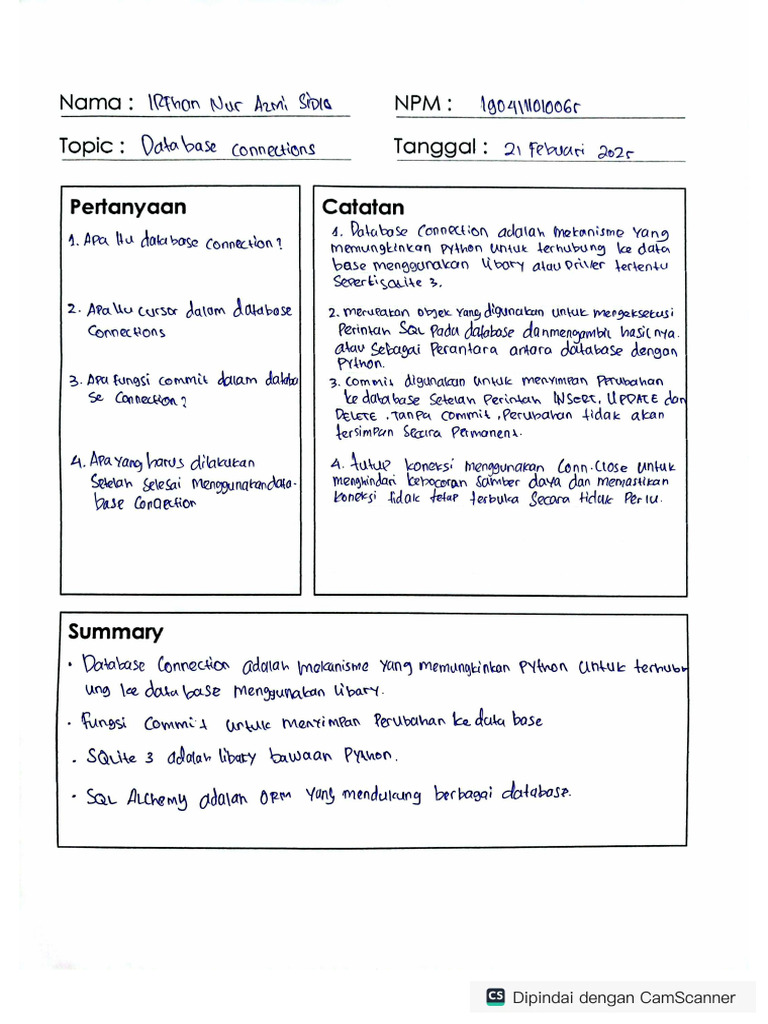 Nama : IRFhan Nur Azmi Sidiq
NPM : 190411010065
Topic : Database connections
Tanggal : 21 Febuari 2025
Pertanyaan
1. Apa Itu database connection?
2. Apa Itu cursor dalam database
Connections
3. Apa fungsi commit dalam databa
se Connection?
4. Apa yang harus dilakukan
Setelah selesai menggunakan data-
base Connection
Catatan
1. Database Connection adalah mekanisme yang
memungkinkan python untuk terhubung ke data
base menggunakan libary atau Driver tertentu
Seperti SQLite 3.
2. merupakan objek yang digunakan untuk mengeksekusi
Perintah SQL Pada database dan mengambil hasilnya.
atau sebagai Perantara antara database dengan
Python.
3. Commit digunakan untuk menyimpan Perubahan
ke database Setelah Perintah INSERT, UPDATE dan
DELETE. Tanpa Commit, Perubahan tidak akan
tersimpan Secara Permanent.
4. tutup koneksi menggunakan Conn.Close untuk
menghindari kebocoran sumber daya dan memastikan
koneksi tidak tetap terbuka Secara tidak Perlu.
Summary
• Database Connection adalah mekanisme yang memungkinkan Python untuk terhubu
ung ke database menggunakan libary.
• Fungsi Commit untuk menyimpan Perubahan ke data base
• SQLite 3 adalah libary bawaan Python.
• SQL Alchemy adalah ORM yang mendukung berbagai database.
CS Dipindai dengan CamScanner